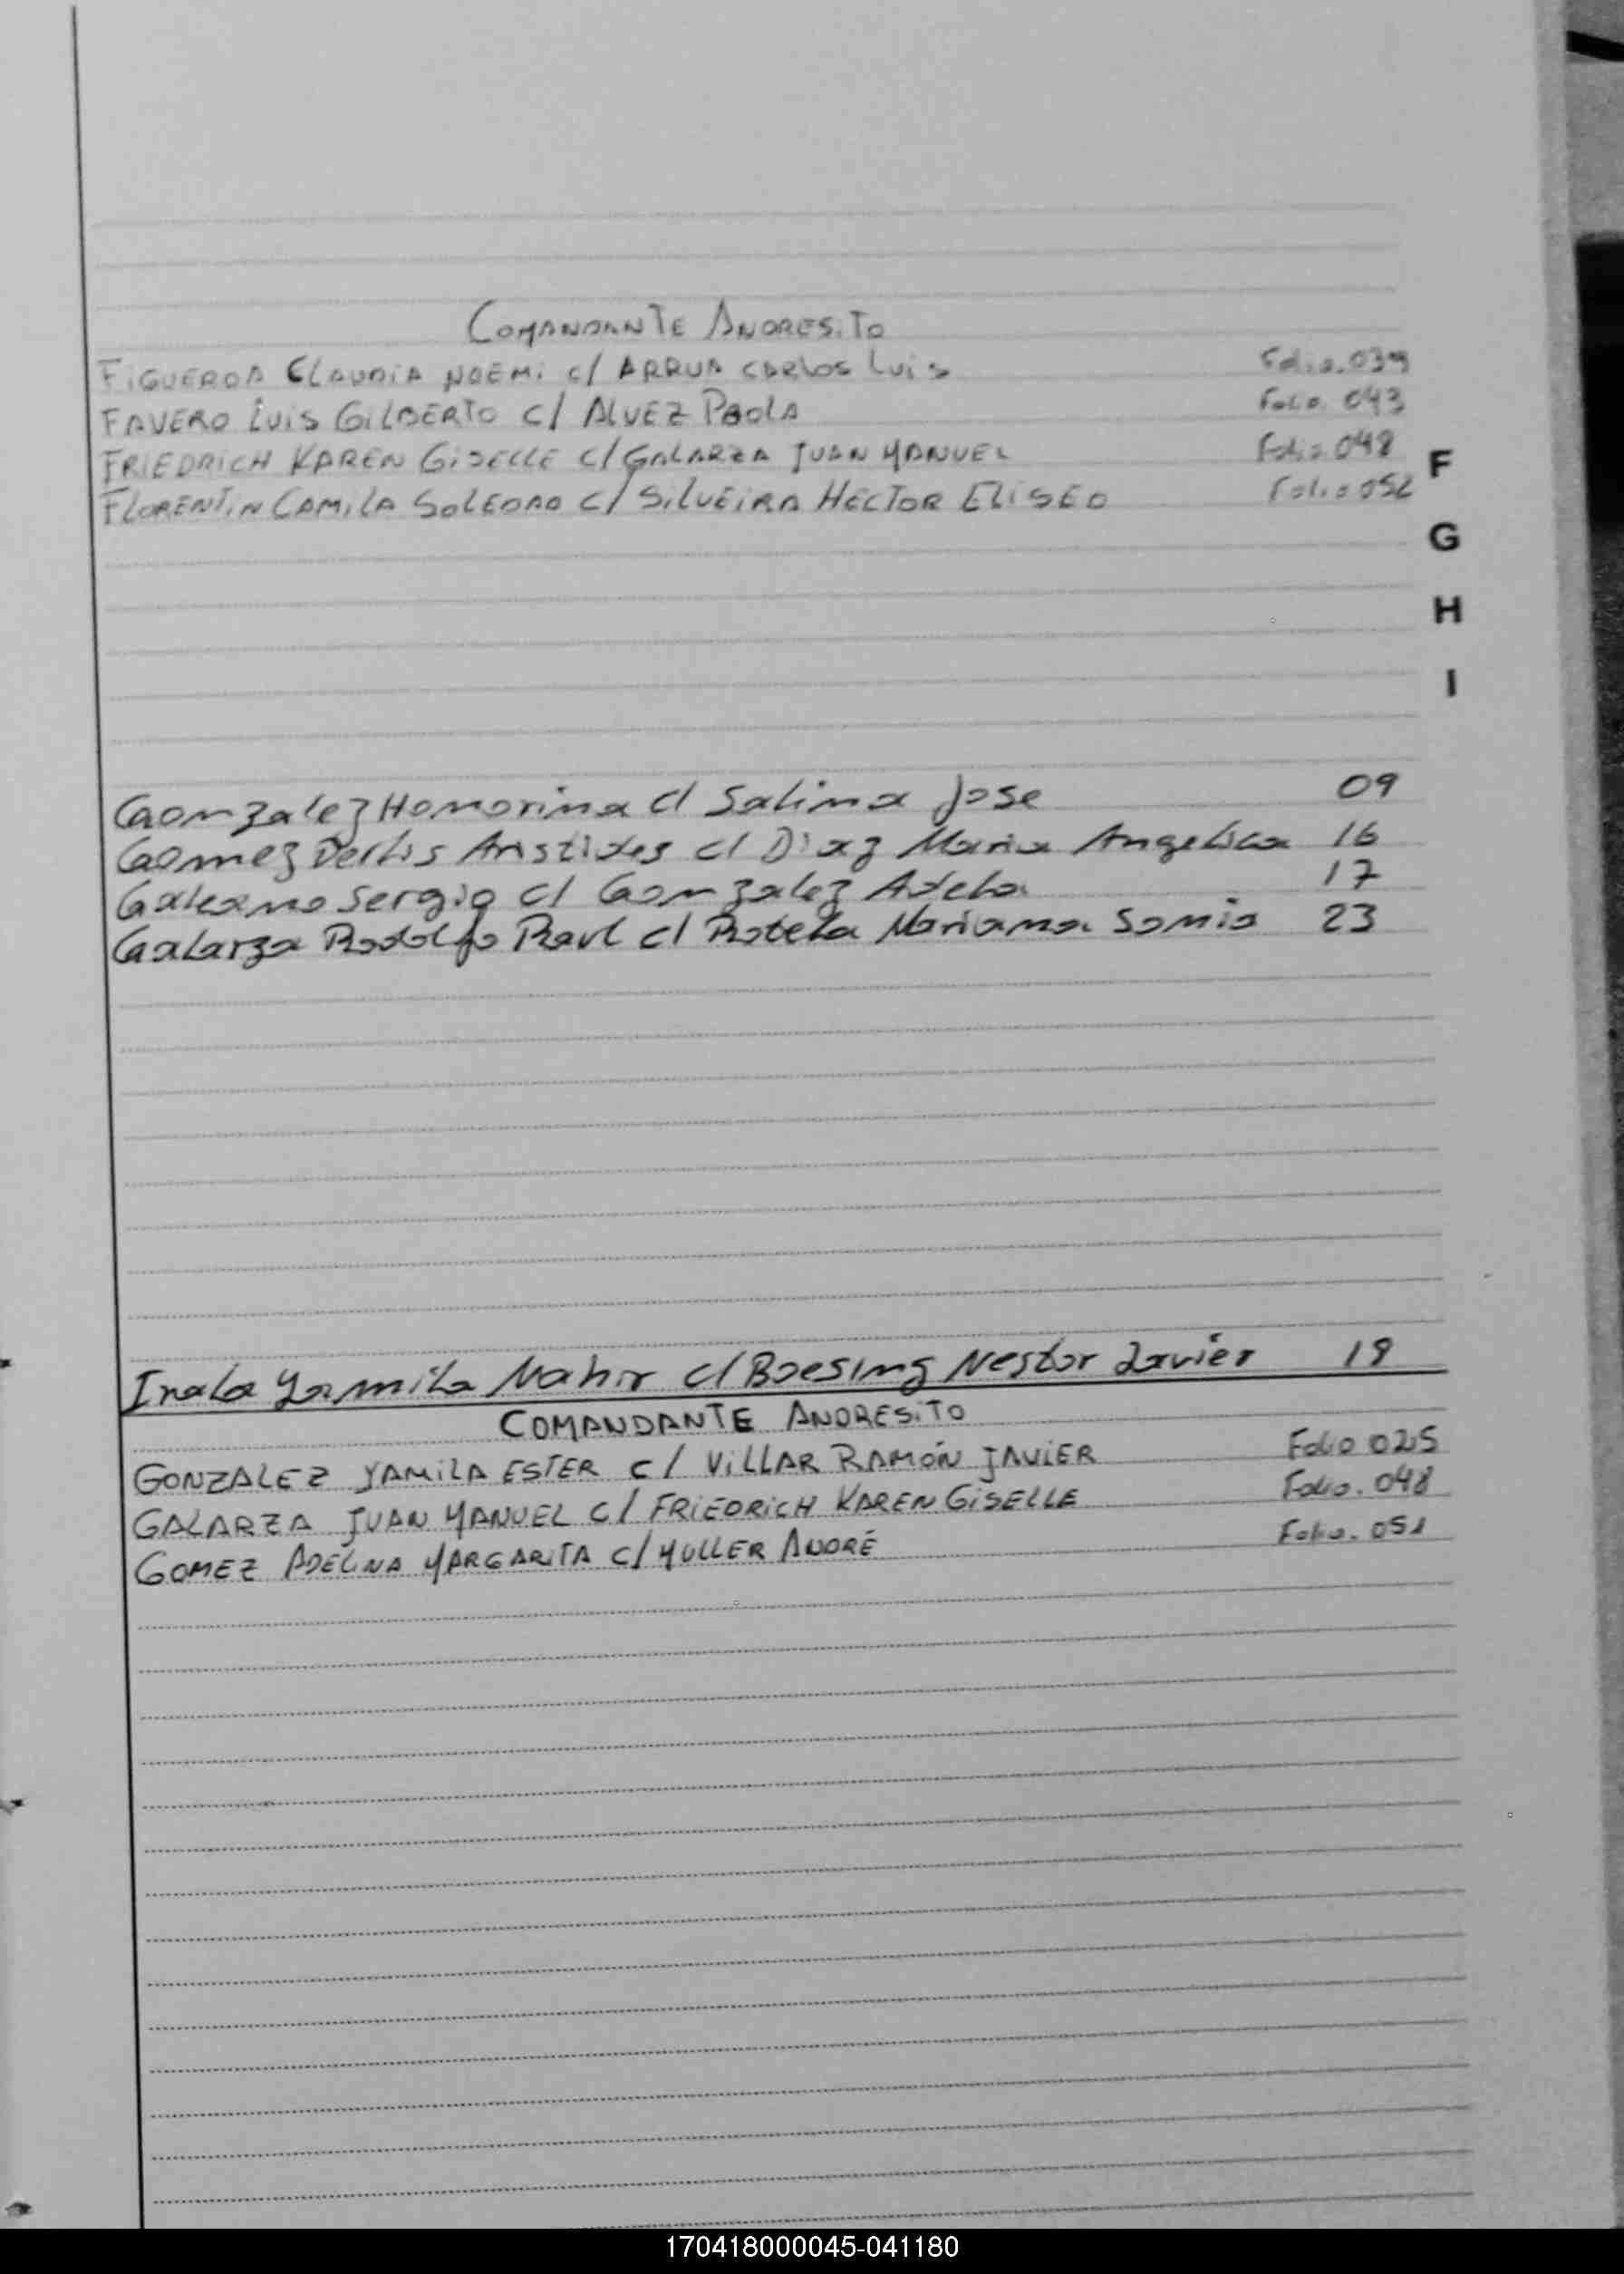 COMANDANTE ANDRESITO
FIGUEROA CLAUDIA NOEMI c/ ARRUA CARLOS LUIS Folio.039
FAVERO LUIS GILBERTO C/ ALVEZ PAOLA Folio. 043
FRIEDRICH KAREN GISELLE C/ GALARZA JUAN MANUEL Folio.048
F
FLORENTIN CAMILA SOLEDAD C/ SILVEIRA HECTOR ELISEO Folio 052
G
H
I
Gonzalez Honorina c/ Salina Jose 09
Gomez Derlis Aristides c/ Diaz Maria Angelica 16
Galeano Sergio c/ Gonzalez Adela 17
Galarza Rodolfo Raul c/ Rotela Mariana Sonia 23
Irala Yamila Nahir c/ Boesing Nestor Javier 19
COMANDANTE ANDRESITO
GONZALEZ YAMILA ESTER C/ VILLAR RAMÓN JAVIER Folio 025
GALARZA JUAN MANUEL C/ FRIEDRICH KAREN GISELLE Folio. 048
GOMEZ ADELINA MARGARITA C/ MULLER ANDRÉ Folio. 051
170418000045-041180